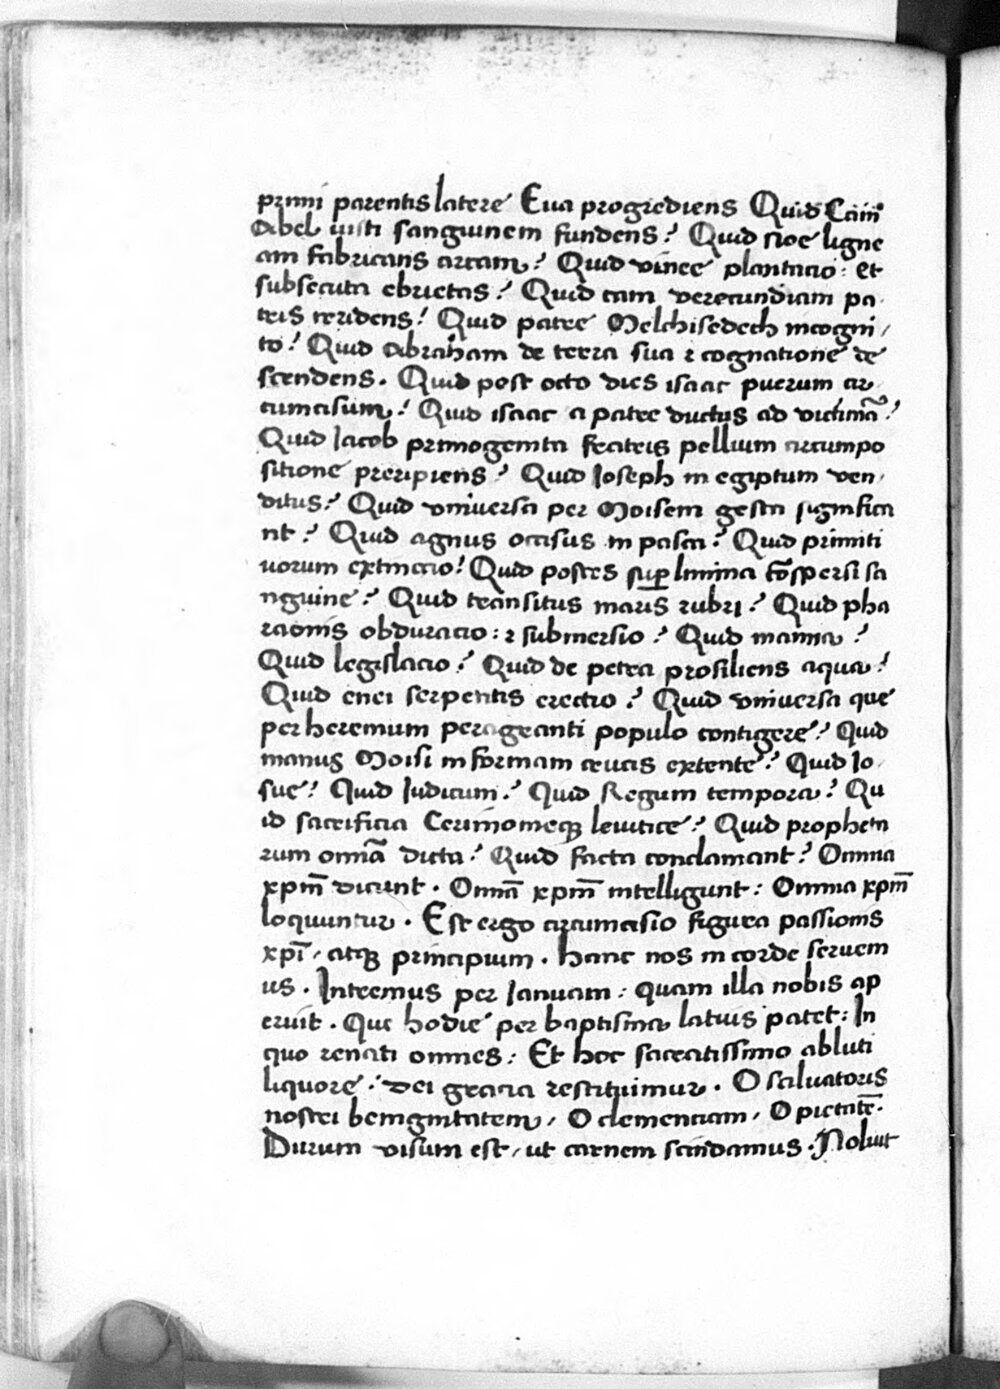 primi parentis latere Eua progrediens Quid Caim
Abel iusti sanguinem fundens? Quid noe ligne
am fabricans arcam? Quid vinee plantacio: et
subsecuta ebrietas? Quid cam verecundiam pa
tris irridens? Quid patre Melchisedech incogni
to? Quid Abraham de terra sua ⁊ cognatione de
scendens. Quid post octo dies isaac puerum cir
cumcisum? Quid isaac a patre ductus ad victimā?
Quid Iacob primogenita fratris pellium circumpo
sitione preripiens? Quid Ioseph in egiptum ven
ditus? Quid vniuersa per Moisem gesta significa
nt? Quid agnus occisus in pasca? Quid primiti
uorum extinctio? Quid postes suꝑ limina cōspersi sa
nguine? Quid transitus maris rubri? Quid pha
raonis obduracio: ⁊ submersio? Quid manna?
Quid legislacio? Quid de petra prosiliens aqua?
Quid enei serpentis erectio? Quid vniuersa que
per heremum peragranti populo contigere? Quid
manus Moisi in formam crucis extente? Quid Io
sue? Quid Iudicum? Quid Regum tempora? Qu
id sacrificia Cerimonieqꝫ leuitice? Quid propheta
rum omīa dicta? Quid facta conclamant? Omnia
xpm̄ dicunt. Omīa xpm̄ intelligunt: Omnia xpm̄
loquuntur. Est ergo circumcisio figura passionis
xpī, atqꝫ principium. hanc nos in corde seruem
us. Intremus per Ianuam: quam illa nobis ap
eruit. Que hodie per baptisma latius patet: In
quo renati omnes: Et hoc sacratissimo abluti
liquore: dei gracia restituimur. O saluatoris
nostri benignitatem, O clemenciam, O pietatē.
Durum visum est, ut carnem scindamus. Noluit